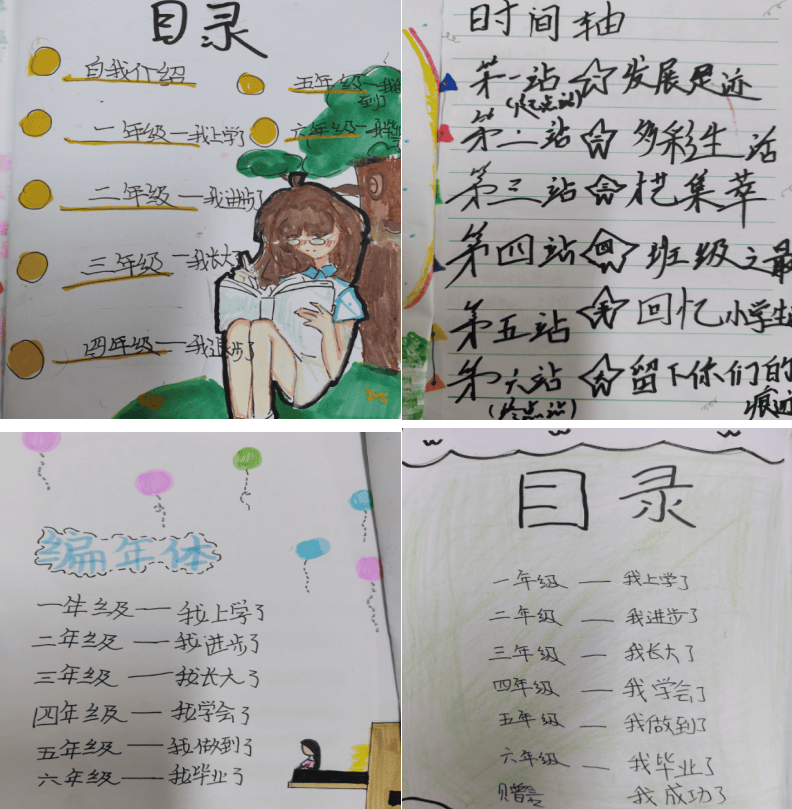 目录
自我介绍
一年级—我上学了
二年级—我进步了
三年级—我长大
四年级—我进步了
五年级—我
到了
六年级—我
时间轴
第一站 一 发展足迹
(起点站)
第二站 二 多彩生活
第三站 三 集萃
第四站 四 班级之最
第五站 五 回忆小学生
第六站 六 留下你们的
(终点站) 痕迹
编年体
一年级——我上学了
二年级——我进步了
三年级——我长大了
四年级——我学会了
五年级——我做到了
六年级——我毕业了
目录
一年级——我上学了
二年级——我进步了
三年级——我长大了
四年级——我学会了
五年级——我做到了
六年级——我毕业了
赠言 我成功了